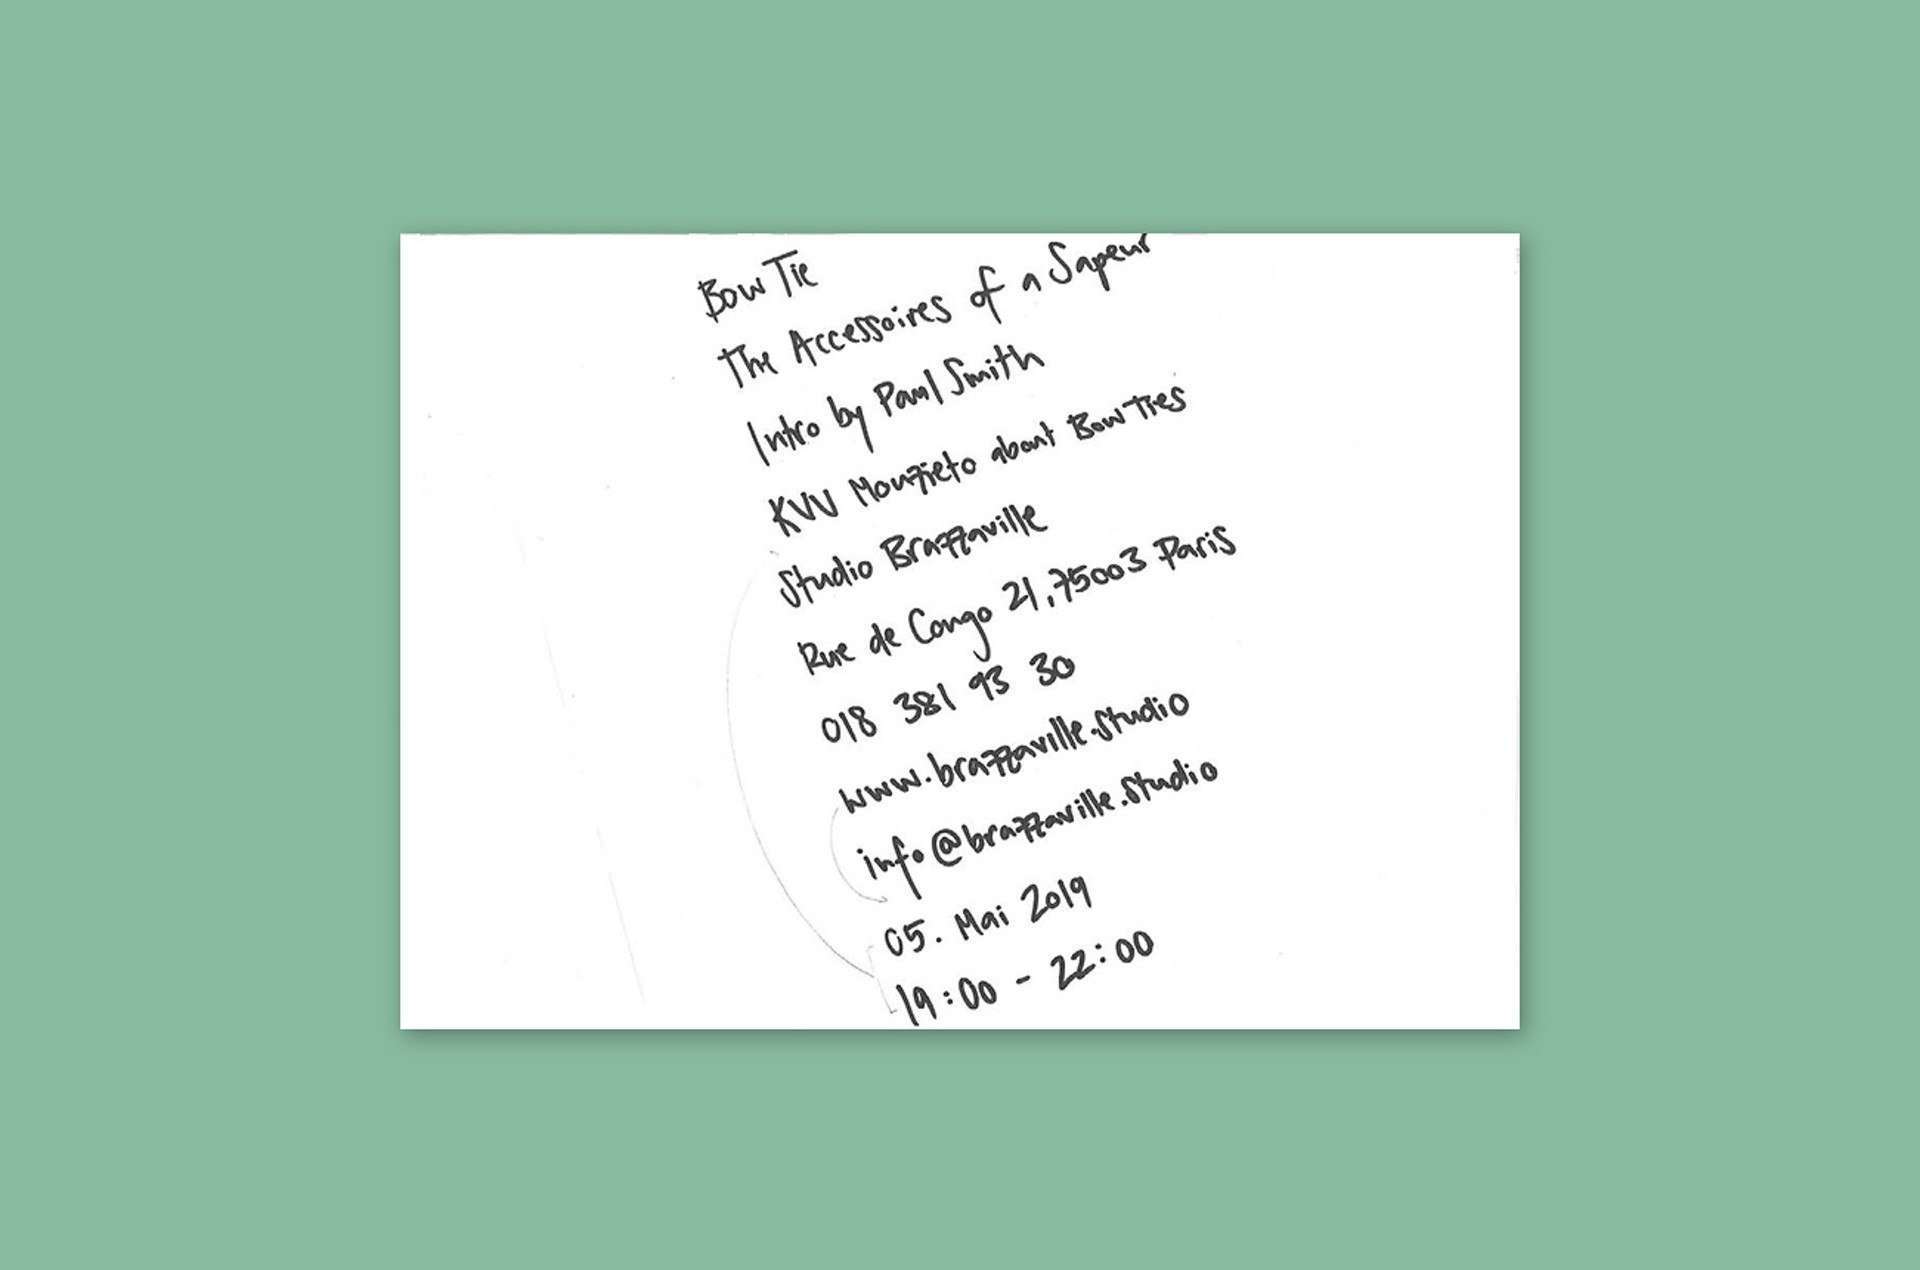 Bow Tie
The Accessoires of a Sapeur
Intro by Paul Smith
KVV Mouzieto about Bow Ties
Studio Brazzaville
Rue de Congo 21, 75003 Paris
018 381 93 30
www.brazzaville.studio
info@brazzaville.studio
05. Mai 2019
19:00 - 22:00